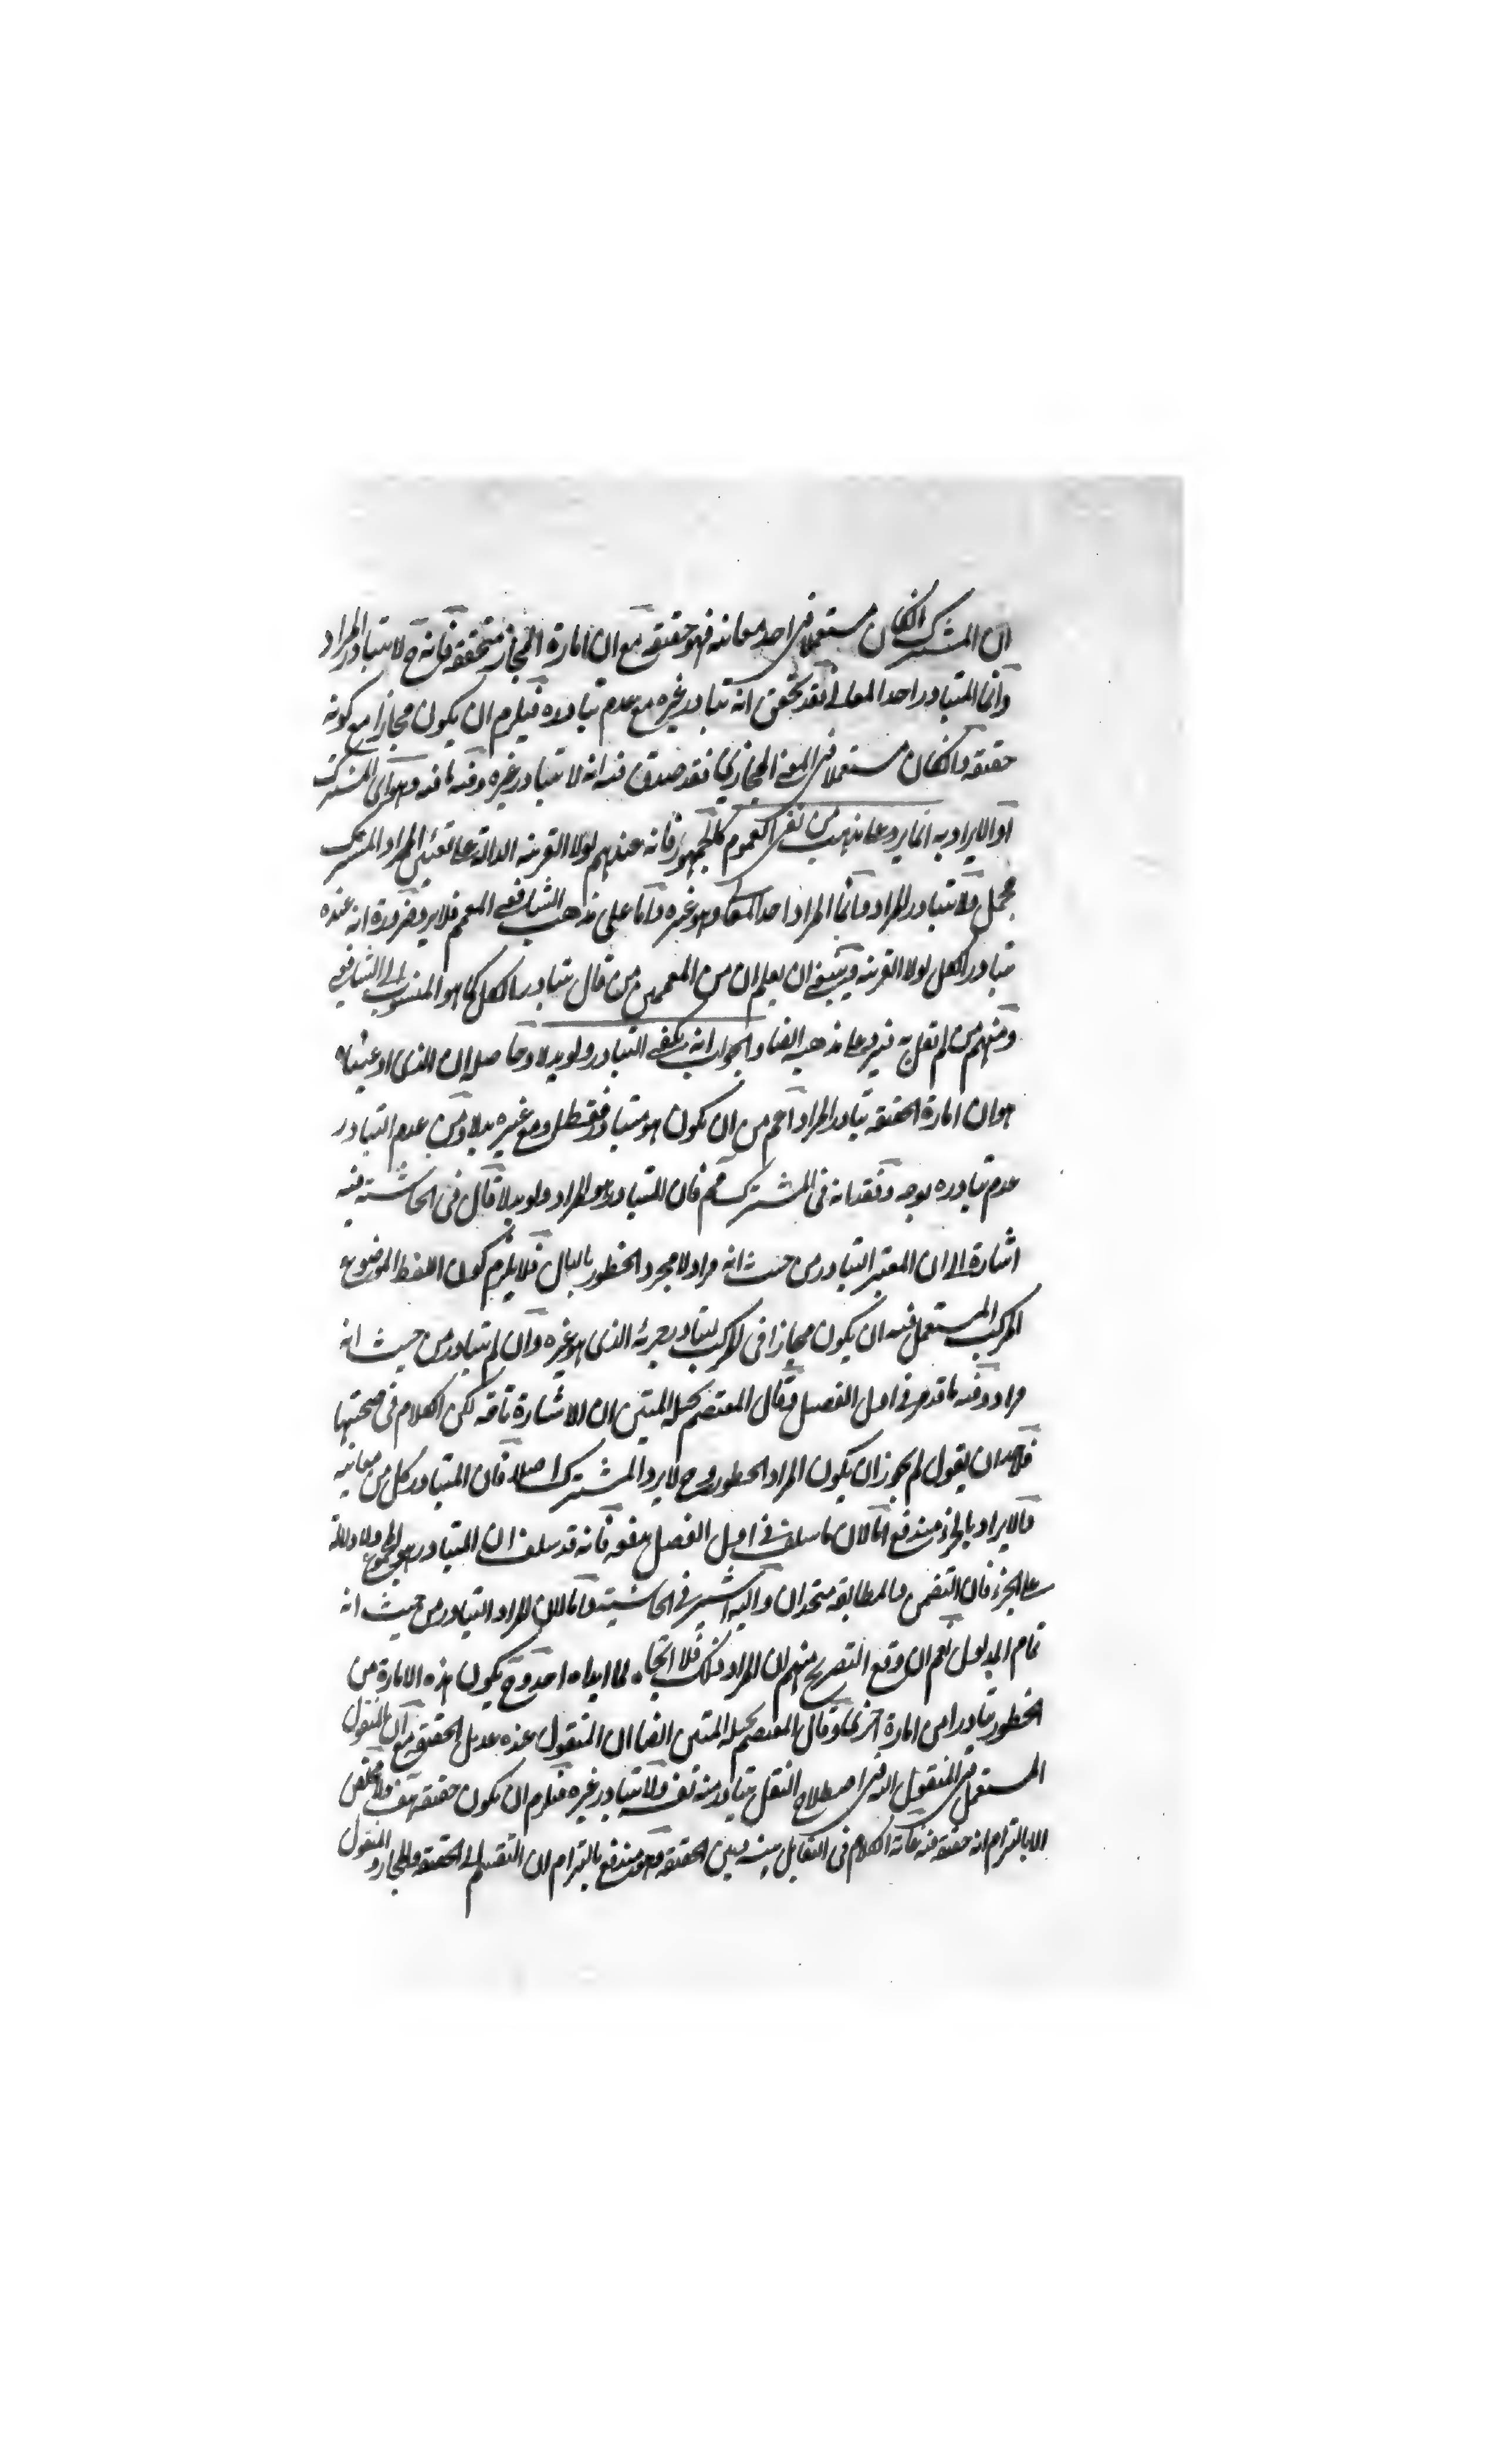 ان المشترك ان كان مستعملا في احد معانيه فهو حقيقة مع ان امارة المجاز متحققة فانه ح لا يتبادر المراد
وانما المتبادر احد المعاني فقد تحقق انه تبادر غيره مع عدم تبادره فيلزم ان يكون مجازا مع كونه
حقيقة وان كان مستعملا في المعنى المجازي فقد صدق فيه انه لا يتبادر غيره وفيه ما فيه وهو اي المشترك
او الايراد به انما يرد على مذهب من نفى العموم كالجمهور فانه عندهم لولا القرينة الدالة على تعيين المراد المشترك
مجمل ولا يتبادر المراد وانما المراد احد المعاني وهو غيره واما على مذهب الشافعي المعمم فلا يرد ضرورة انه عنده
يتبادر الكل لولا القرينة وينبغي ان يعلم ان من المعممين من قال بتبادر الكل كما هو المنسوب الى الشافعي
ومنهم من لم يقل به فيرد على مذهبه ايضا والجواب انه يكفي التبادر ولو بدلا وحاصله ان الذي ادعيناه
هو ان امارة الحقيقة تبادر المراد اعم من ان يكون هو متبادرا فقط او مع غيره بدلا ومن عدم التبادر
عدم تبادره بوجه وفقدانه في المشترك مم فان المتبادر هو المراد ولو بدلا قال في الحاشية فيه
اشارة الى ان المعتبر التبادر من حيث انه مراد لا مجرد الخطور بالبال فلا يلزم كون اللفظ الموضوع
للمركب المستعمل فيه ان يكون مجازا في المركب لتبادر جزئه الذي هو غيره وان لم يتبادر من حيث انه
مراد وفيه ما قد مر في اول الفصل وقال المعتصم بحبله المتين ان الاشارة تامة لكن الكلام في صحتها
فلاحد ان يقول لم يجوز ان يكون المراد الخطور وح لا يرد المشترك اصلا فان المتبادر كل من معانيه
والايراد بالجزء مندفع اما لان ما سلف في اول الفصل بعفوه فانه قد سلف ان المتبادر هو المجموع ولا دلالة
على الجزء فان التضمن والمطابقة متحدان واليه اشير في الحاشية واما لان المراد التبادر من حيث انه
تمام المدلول نعم ان وقع التصريح منهم ان المراد ذلك فلا اتجاه لما ابداه احد وح يكون هذه الامارة من
الخطور تبادرا من امارة اخرى وقال المعتصم بحبله المتين ايضا ان المنقول عنده عديل الحقيقة مع ان المنقول
المستعمل في المنقول اليه في اصطلاح النقل يتبادر منه نفسه ولا يتبادر غيره فيلزم ان يكون حقيقة هف ولا مخلص
الا بالتزام انه حقيقة فيه غاية الكلام في التقابل بينه وبين الحقيقة وهو مندفع بالتزام ان التقسيم الى الحقيقة والمجاز والمنقول